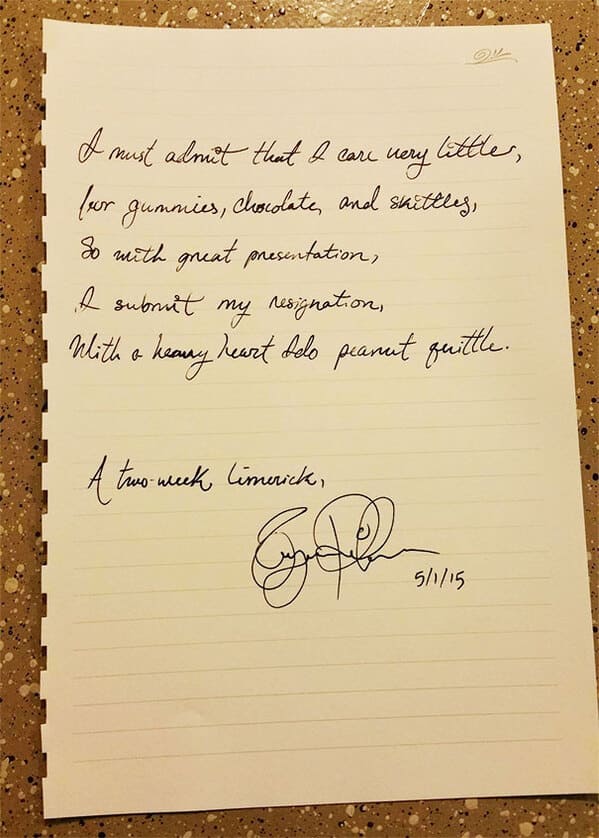 I must admit that I care very little,
for gummies, chocolate, and skittles,
So with great presentation,
I submit my resignation,
With a heavy heart I do peanut quittle.
A two-week limerick,
5/1/15